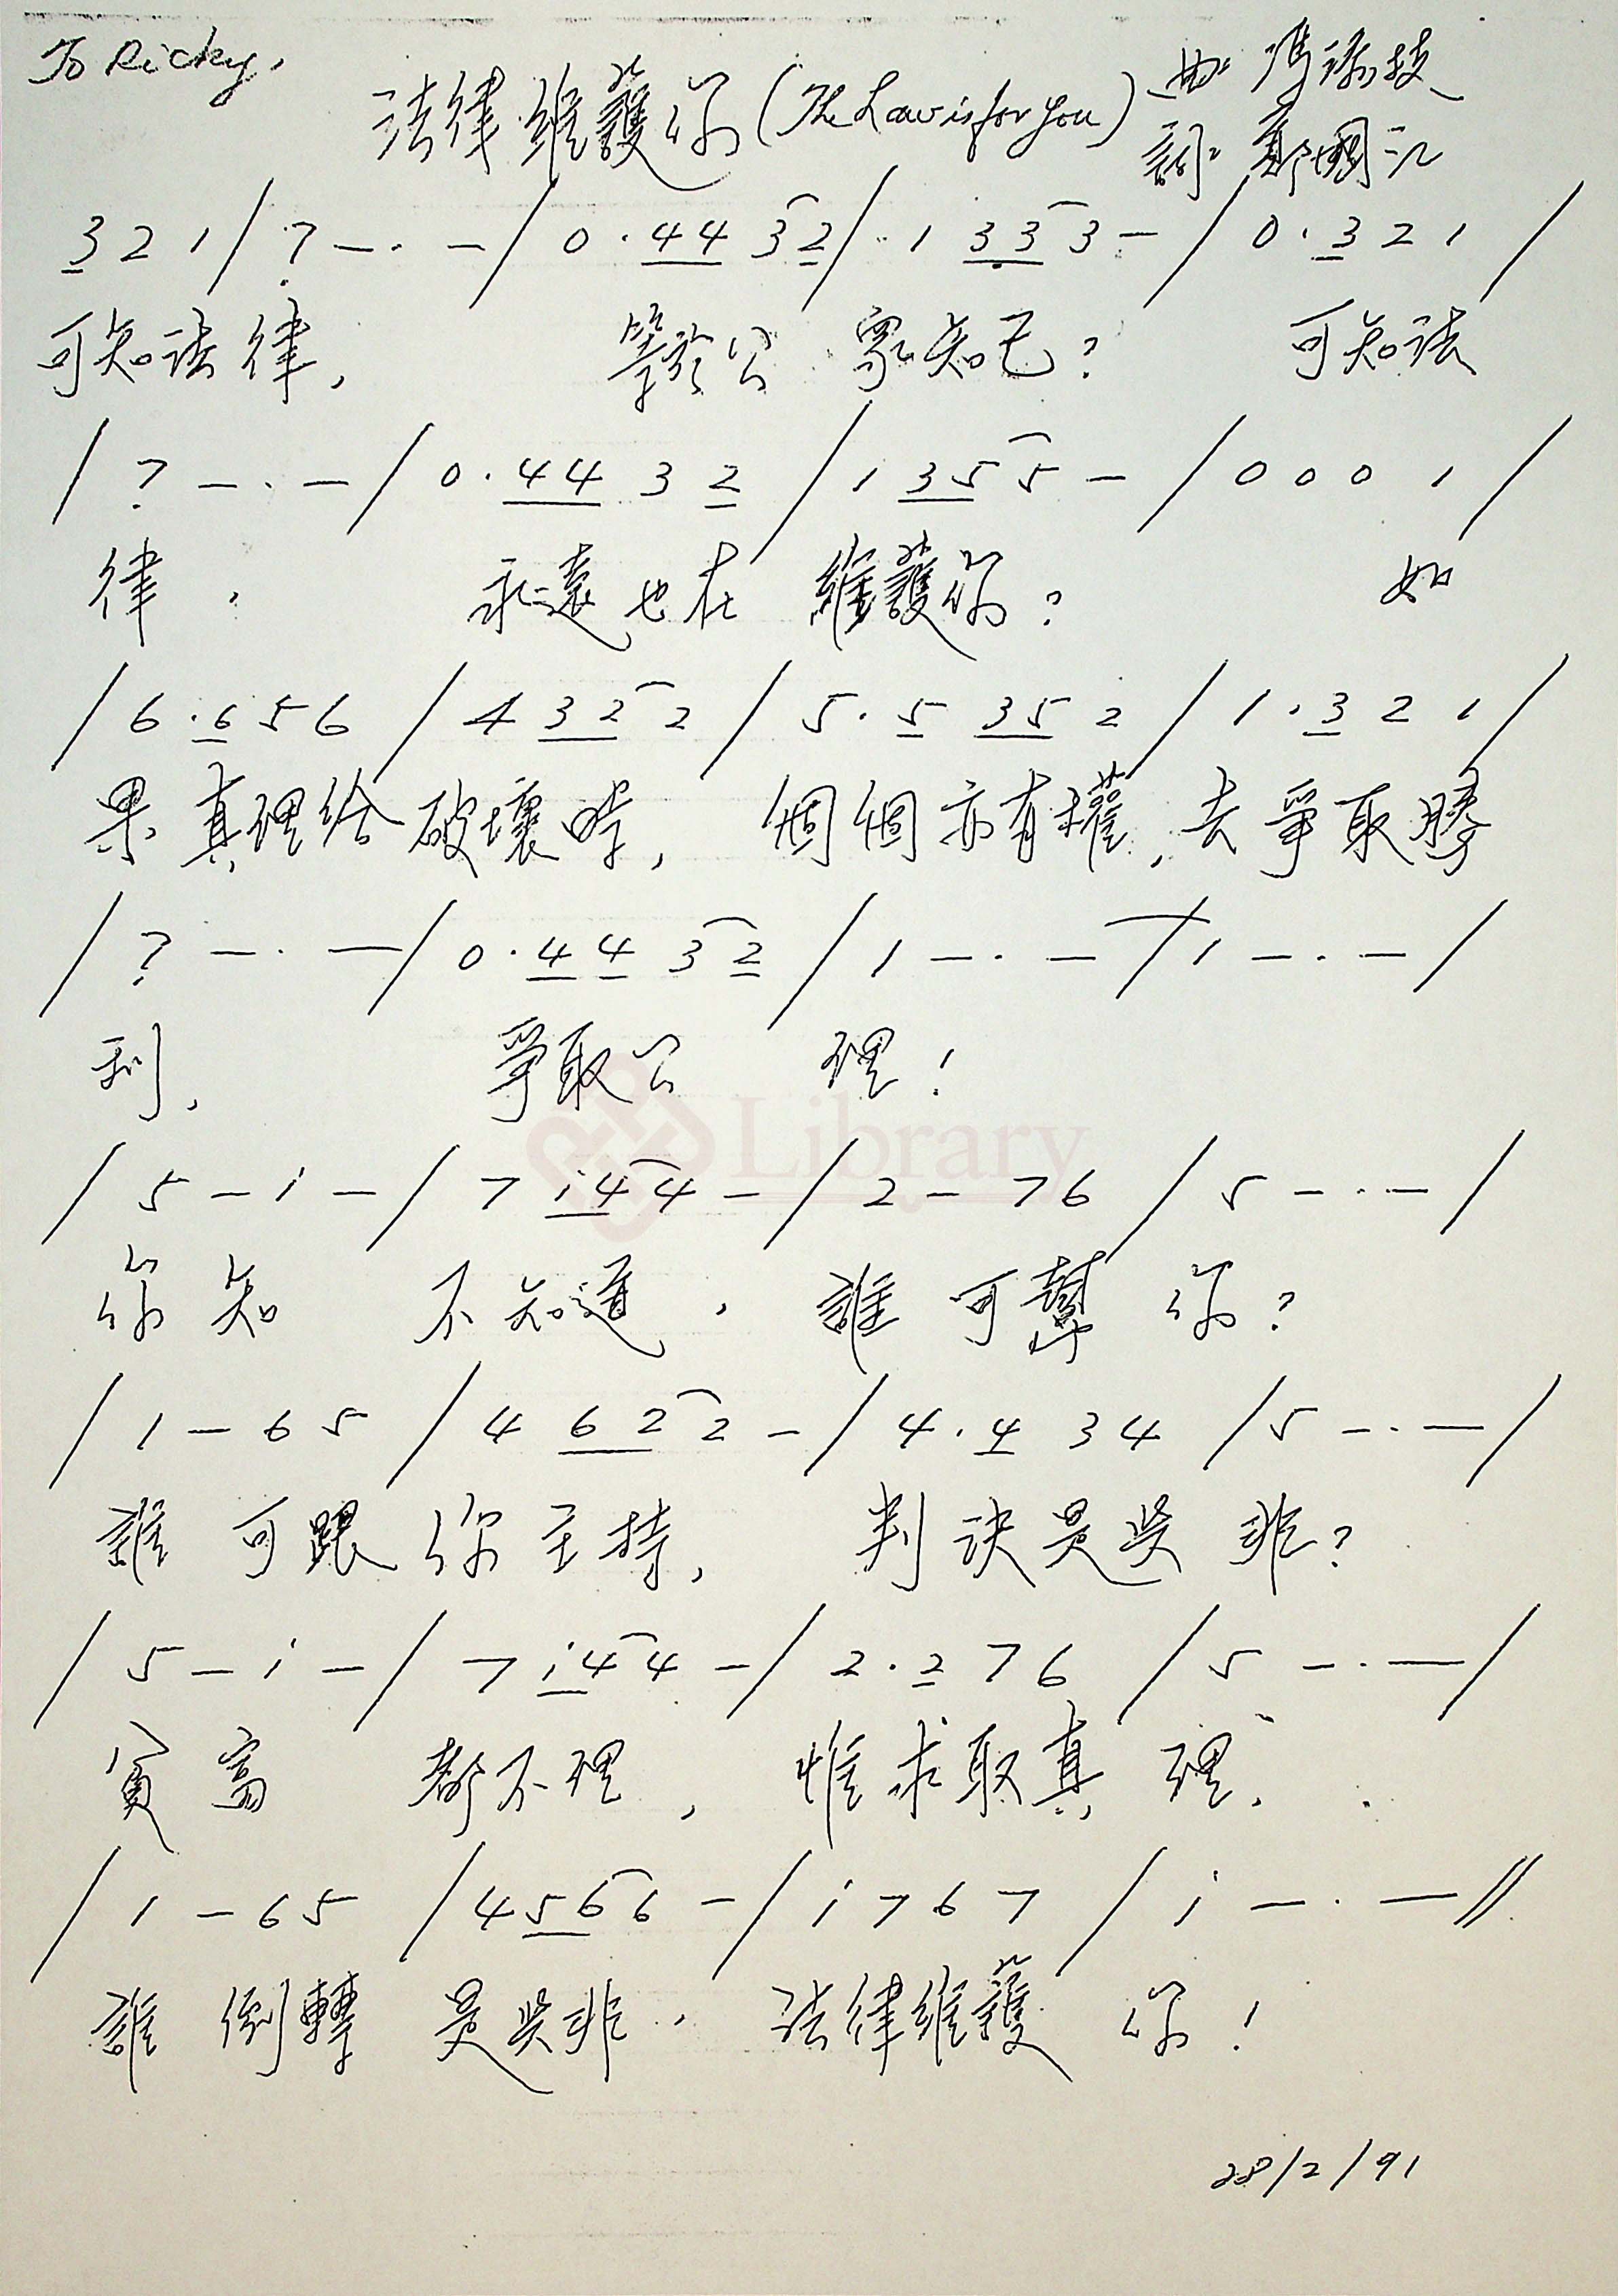 To Ricky,
法律維護你 (The Law is for you) 曲: 馮添枝
詞: 鄭國江
3 2 1 / 7 — · — / 0 · 4 4 3 2 / 1 3 3 3 — / 0 · 3 2 1 /
可知法律, 等於公眾知己? 可知法
/ 7 — · — / 0 · 4 4 3 2 / 1 3 5 5 — / 0 0 0 1 /
律, 永遠也在維護你? 如
/ 6 · 6 5 6 / 4 3 2 2 / 5 · 5 3 5 2 / 1 · 3 2 1 /
果真理給破壞時, 個個亦有權, 去爭取勝
/ 7 — · — / 0 · 4 4 3 2 / 1 — · — / 1 — · — /
利, 爭取公理!
Library
/ 5 — i — / 7 i 4 4 — / 2 — 7 6 / 5 — · — /
你知不知道, 誰可幫你?
/ 1 — 6 5 / 4 6 2 2 — / 4 · 4 3 4 / 5 — · — /
誰可跟你主持, 判決是與非?
/ 5 — i — / 7 i 4 4 — / 2 · 2 7 6 / 5 — · — /
貧富都不理, 惟求取真理,
/ 1 — 6 5 / 4 5 6 6 — / i 7 6 7 / i — · — //
誰倒轉是與非, 法律維護你!
28/2/91